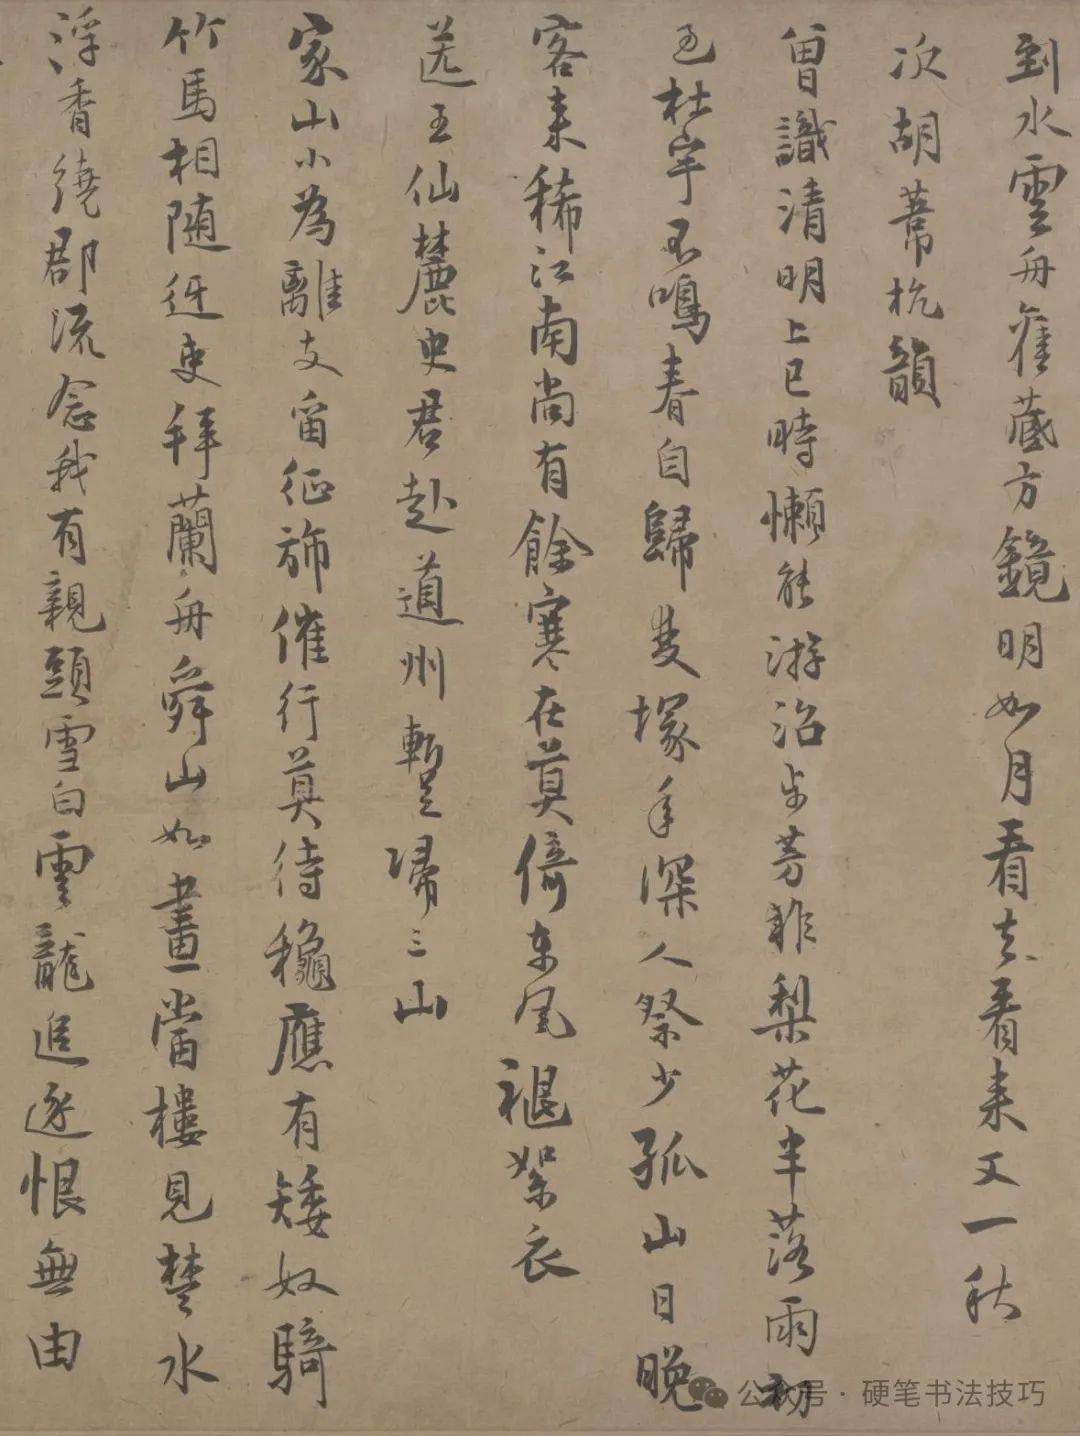 到水雲舟舊藏方鏡明如月看去看來又一秋
次胡葦杭韻
曾識清明上巳時懶能游冶步芳菲梨花半落雨初
過杜宇不鳴春自歸雙塚年深人祭少孤山日晚
客來稀江南尚有餘寒在莫倚東風褪絮衣
送王仙麓史君赴道州暫歸三山
家山小為離支留征斾催行莫待穐應有矮奴騎
竹馬相隨迓吏拜蘭舟舜山如畫當樓見楚水
浮香繞郡流念我有親頭雪白雲龍追逐恨無由
公众号 · 硬笔书法技巧